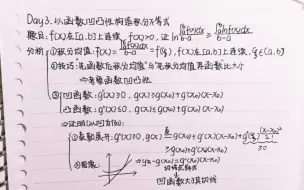 Day3. 以函数凹凸性构造积分不等式
题目: f(x)在[a,b]上连续, f(x)>0, 证 ln ∫ₐᵇf(x)dx/(b-a) ≥ ∫ₐᵇlnf(x)dx/(b-a)
分析: ①积分均值: f(x) = ∫ₐᵇf(x)dx/(b-a) = f(ξ), f(x)在[a,b]上连续, ξ∈(a,b)
②技巧: "先函数后积分均值"与"先积分均值再函数"比大小
⇒考虑函数凹凸性
③ 凹函数: g''(x)≥0, g(x)≥g(x₀)+g'(x₀)(x-x₀)
凸函数: g''(x)≤0, g(x)≤g(x₀)+g'(x₀)(x-x₀)
⇒证明(以凹为例):
①泰勒展开: g''(x)≥0, g(x)=g(x₀)+g'(x₀)(x-x₀)+g''(ξ)(x-x₀)²/2
≥0
≥g(x₀)+g'(x₀)(x-x₀)
⇒y-g(x₀)=g'(x₀)(x-x₀)
凹函数大于其切线